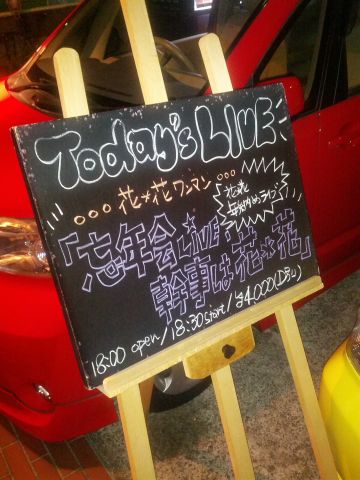 Today's LIVE
○○○ 花*花ワンマン ○○○
花*花
年納めライブ!
「忘年会LIVE
幹事は花*花」
18:00 open/18:30 start/¥4,000(D別)